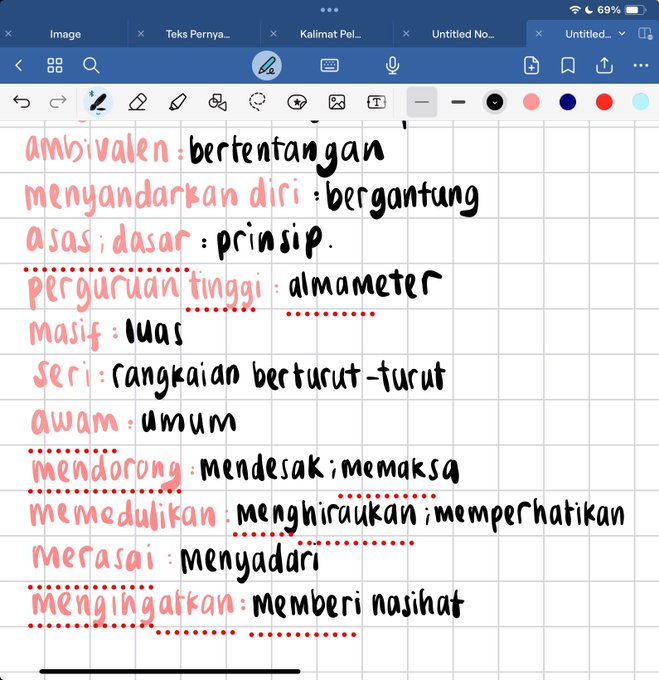 69%
Image
Teks Pernya...
Kalimat Pel...
Untitled No...
Untitled...
ambivalen : bertentangan
menyandarkan diri : bergantung
asas ; dasar : prinsip.
perguruan tinggi : almameter
masif : luas
seri : rangkaian berturut-turut
awam : umum
mendorong : mendesak ; memaksa
memedulikan : menghiraukan ; memperhatikan
merasai : menyadari
mengingatkan : memberi nasihat